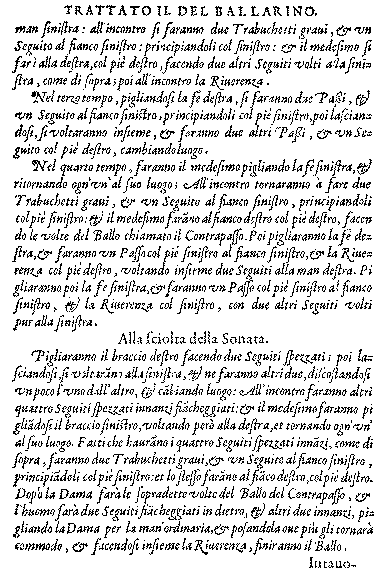 TRATTATO II. DEL BALLARINO.
man sinistra: all'incontro si faranno due Trabuchetti graui, & vn
Seguito al fianco sinistro: principiandoli col sinistro: & il medesimo si
farà alla destra, col piè destro, facendo due altri Seguiti volti alla sinis-
tra, come di sopra; poi all'incontro la Riuerenza.
Nel terzo tempo, pigliandosi la fè destra, si faranno due Passi, &
vn Seguito al fianco sinistro, principiandoli col piè sinistro, poi lascian-
dosi, si voltaranno insieme, & faranno due altri Passi, & vn Se-
guito col piè destro, cambiando luogo.
Nel quarto tempo, faranno il medesimo pigliando la fè sinistra, &
ritornando ogn'vn' al suo luogo; All'incontro tornaranno à fare due
Trabuchetti graui, & vn Seguito al fianco sinistro, principiandoli
col piè sinistro: & il medesimo farãno al fianco destro col piè destro, facen
do le volte del Ballo chiamato il Contrapasso. Poi pigliaranno la fè de-
stra, & faranno vn Passo col piè sinistro al fianco sinistro, & la Riue-
renza col piè destro, voltando insieme due Seguiti alla man destra. Pi
gliaranno poi la fè sinistra, & faranno vn Passo col piè sinistro al fianco
sinistro, & la Riuerenza col sinistro, con due altri Seguiti volti
pur alla sinistra.
Alla sciolta della Sonata.
Pigliaranno il braccio destro facendo due Seguiti spezzati; poi la-
sciandosi, si voltarãno alla sinistra, & ne faranno altri due, discostandosi
vn poco l'vno dall'altro, & cãbiando luogo: All'incontro faranno altri
quattro Seguiti spezzati innanzi fiãcheggiati: & il medesimo faranno pi
gliãdosi il braccio sinistro, voltando però alla destra, et tornando ogn'vn'
al suo luogo. Fatti che haurãno i quattro Seguiti spezzati innãzi, come di
sopra, faranno due Trabuchetti graui, & vn Seguito al fianco sinistro,
principiãdeli col piè sinistro: et lo stesso farãno al fiãco destro, col piè destro.
Dopò la Dama farà le sopradette volte del Ballo del Contrapasso, &
l'huomo farà due Seguiti fiãcheggiati in dietro, & altri due innanzi, pi-
gliando la Dama per la man'ordinaria, & posandola oue più gli tornarà
commodo, & facendosi insieme la Riuerenza, finiranno il Ballo.
Intauo-